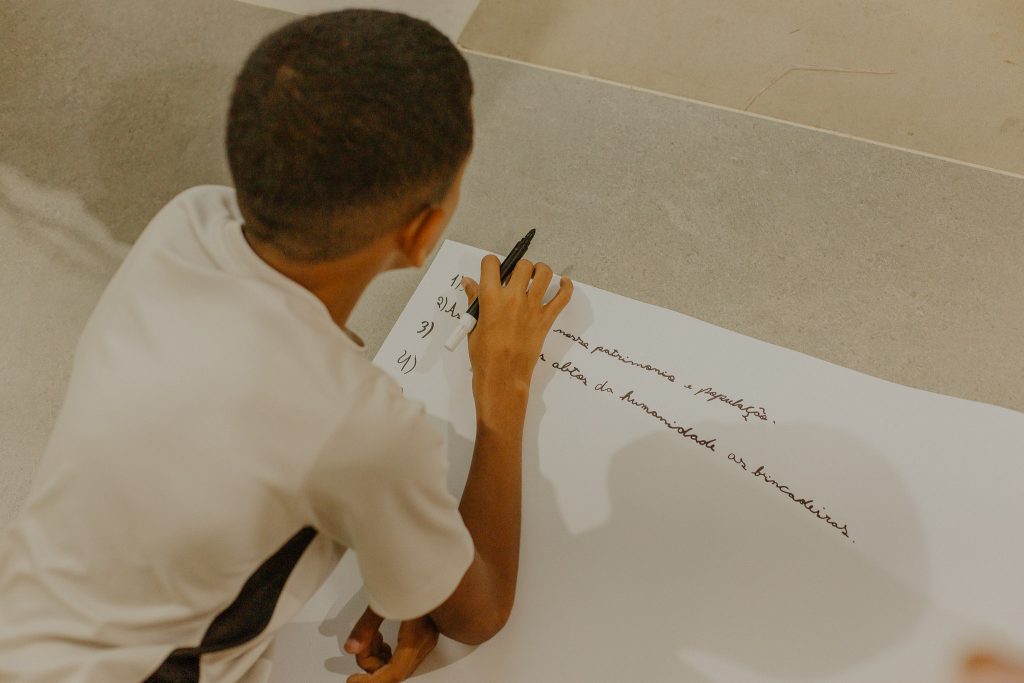 1) nossa patrimonio e população.
2) As abtos da humanidade as brincadeiras.
3)
4)